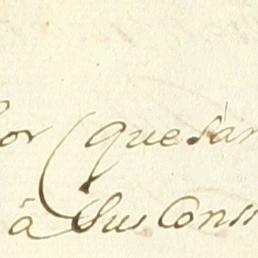 or (que san
à Sus Cons